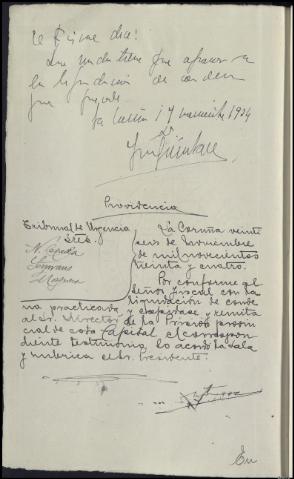 El Fiscal dice:
Que nada tiene que oponer a
la liquidación de condena
que precede.
La Coruña 17 noviembre 1934
Providencia
Tribunal de Urgencia
Sres.
La Coruña veinte
seis de Noviembre
de mil novecientos
treinta y cuatro.
Por conforme el
señor Fiscal con la
liquidación de conde
na practicada, y expídase y remita
al Sr. Director de la Prisión provin
cial de esta Capital el correspon
diente testimonio, lo acordó la Sala
y rubrica el Sr. Presidente.
En